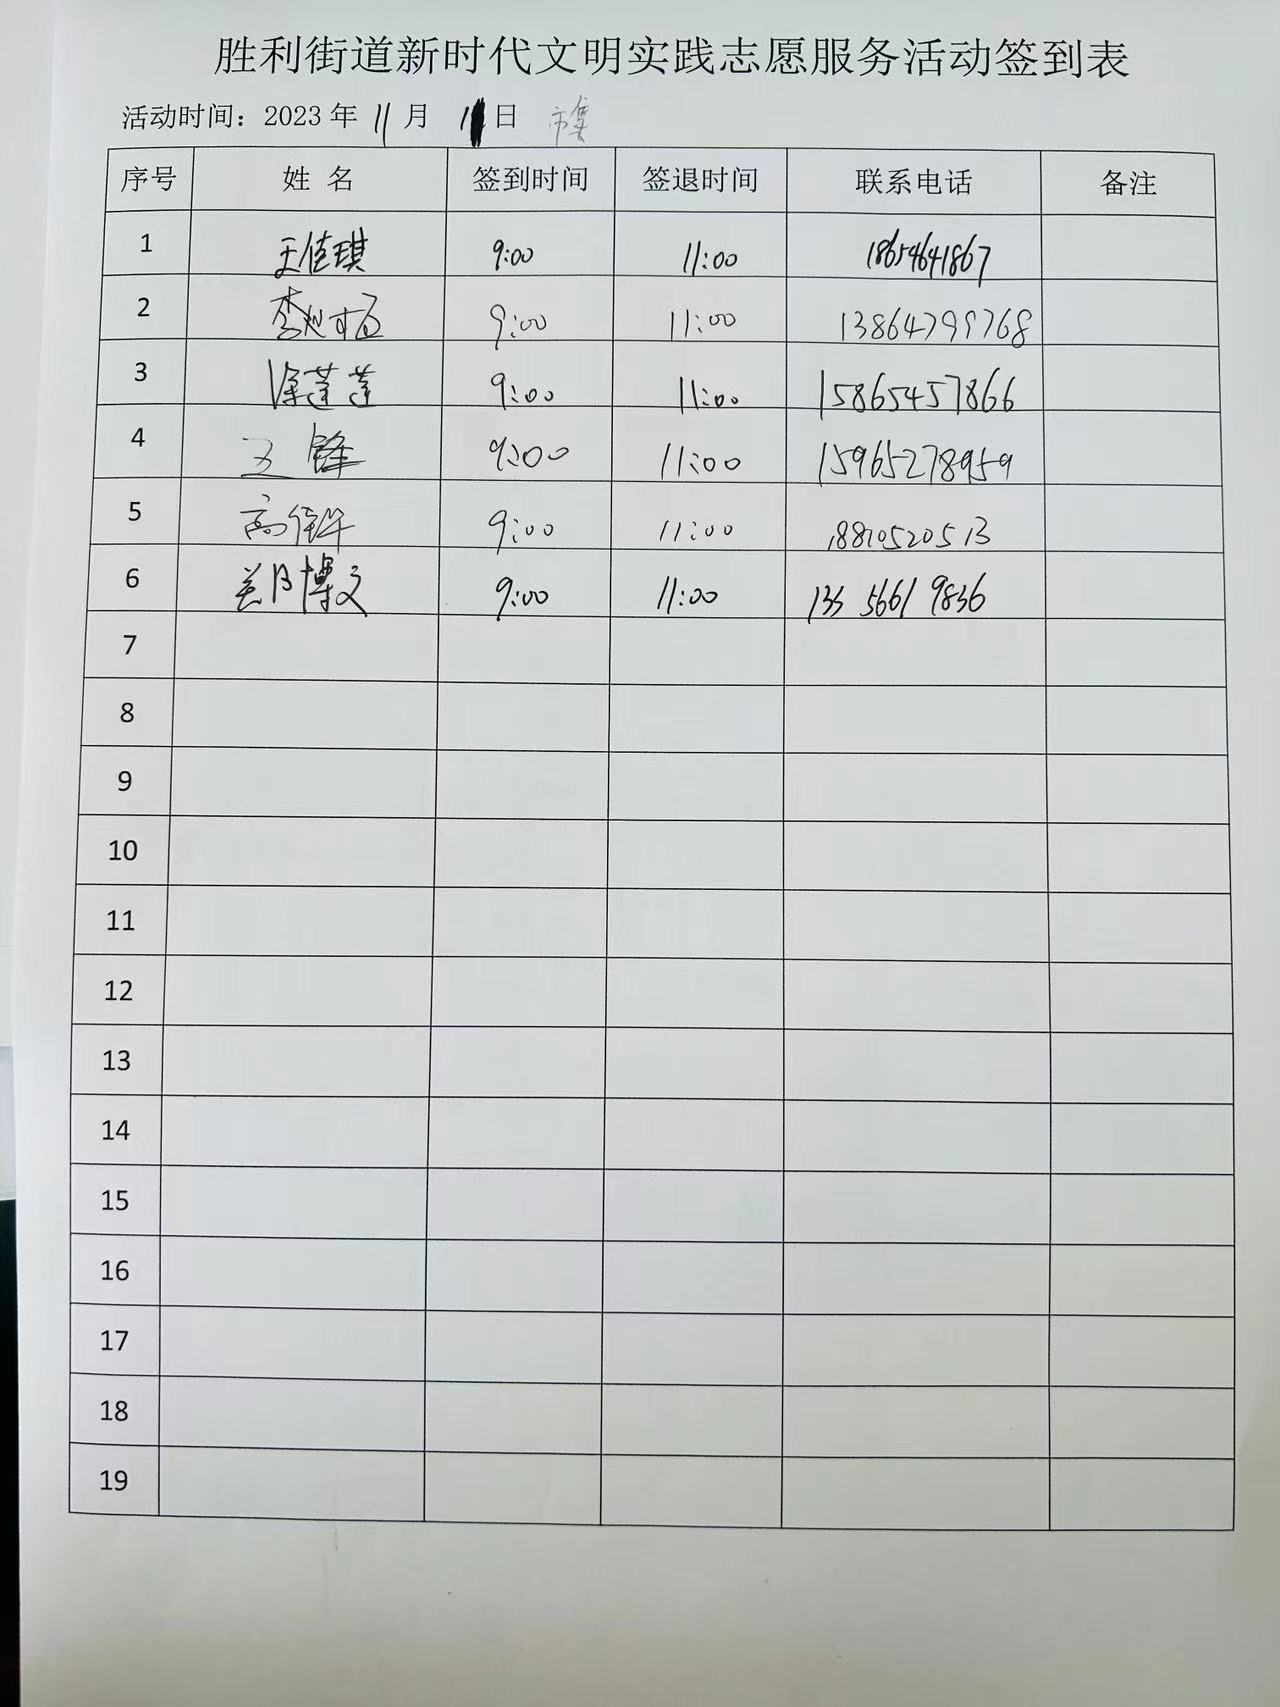 胜利街道新时代文明实践志愿服务活动签到表
活动时间：2023 年 11 月 日 市集
序号 姓 名 签到时间 签退时间 联系电话 备注
1 王佳琪 9:00 11:00 18654641867
2 9:00 11:00 13864799768
3 徐莲莲 9:00 11:00 15865457866
4 王锋 9:00 11:00 15965278959
5 高 9:00 11:00 18810520513
6 博文 9:00 11:00 135 5661 9836
7
8
9
10
11
12
13
14
15
16
17
18
19